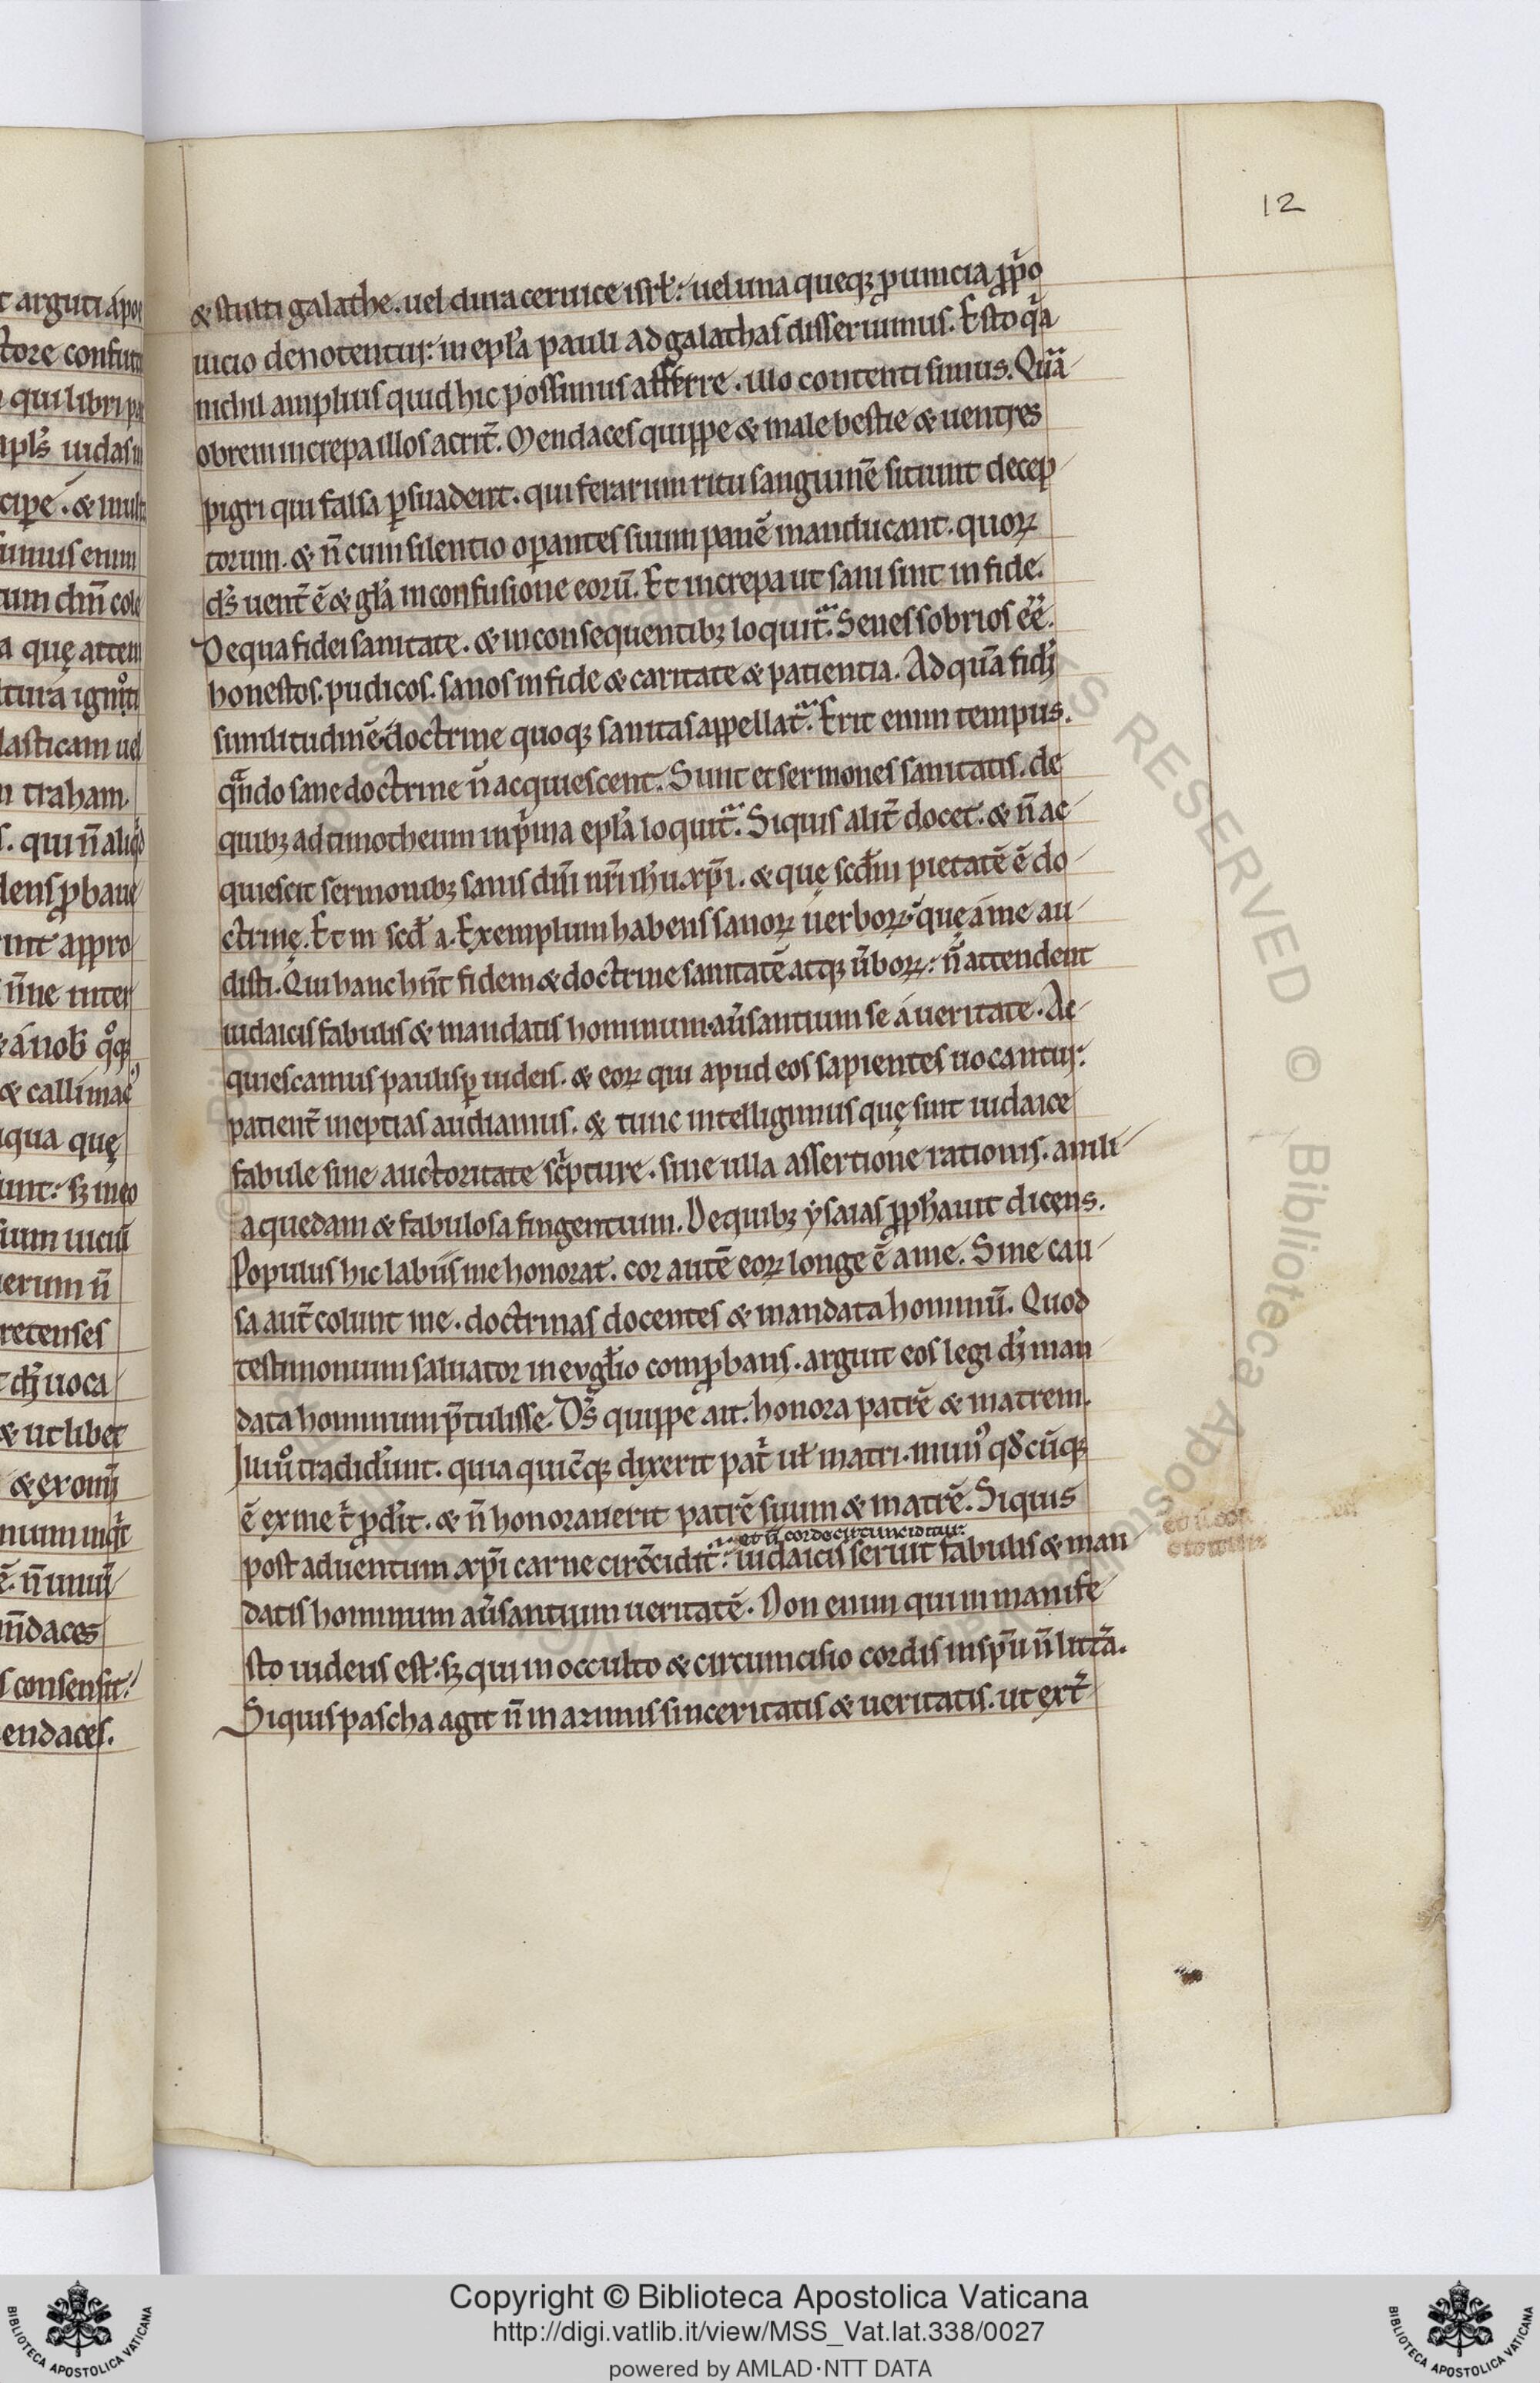 12
& stulti galathe. uel dura ceruice isrł: uel una queqꝫ ꝓuincia ꝓprio
uicio denotentur: in epła pauli ad galathas disseruimus. Esto qͥa
nichil amplius quid hic possimus afferre. illo contenti simus. Quā
obrem increpa illos acrit̄. Mendaces quippe & male bestie & uentres
pigri qui falsa ꝑsuadent. qui ferarum ritu sanguinē sitiunt decep
torum. & n̄ cum silentio oꝑantes suum panē manducant. quoꝝ
ds̄ uent̄ ē & gła in confusione eorū. Et increpa ut sani sint in fide.
De qua fidei sanitate. & in consequentibꝫ loquit᷑. Senes sobrios eē.
honestos. pudicos. sanos in fide & caritate & patientia. Ad quā fidei
similitudinē doctrine quoqꝫ sanitas appellat᷑. Erit enim tempus.
qn̄do sane doctrine n̄ acquiescent. Sunt et sermones sanitatis. de
quibꝫ ad timotheum in pͥma epła loquit᷑. Siquis alit̄ docet. & n̄ ac
quiescit sermonibꝫ sanis dn̄i nr̄i ihu xp̄i. & quę scd̄m pietatē ē do
ctrinę. Et in scd̄a. Exemplum habens sanoꝝ uerboꝝ: quę a me au
disti. Qui hanc hn̄t fidem & doctrine sanitatē atqꝫ ūboꝝ: n̄ attendent
iudaicis fabulis & mandatis hominum aūsantium se a ueritate. Ac
quiescamus paulisꝑ iudeis. & eoꝝ qui apud eos sapientes uocantur:
patient̄ ineptias audiamus. & tunc intelligimus quę sint iudaice
fabule sine auctoritate scͥpture. sine ulla assertione rationis. anili
a quedam & fabulosa fingentium. De quibꝫ ysaias ꝓphauit dicens.
Populus hic labiis me honorat. cor autē eoꝝ longe ē a me. Sine cau
sa aut̄ colunt me. doctrinas docentes & mandata hominū. Quod
testimonium saluator in evgłio comꝓbans. arguit eos legi dei man
data hominum p̄tulisse. Ds̄ quippe ait. honora patrē & matrem.
qͥcūqꝫ dixerit patͥ uł matri. mun᾿ qd̄cūqꝫ
ē ex me t̄ ꝓderit. & n̄ honorauerit patrē suum & matrē. Siquis
et n̄ corde circunciditur:
post aduentum xp̄i carne circūcidit᷑: iudaicis seruit fabulis & man
datis hominum aūsantium ueritatē. Non enim qui in manife
sto iudeus est. sꝫ qui in occulto & circumcisio cordis in sp̄u n̄ littͣa.
Siquis pascha agit n̄ in azimis sinceritatis & ueritatis. ut ext̄
Copyright © Biblioteca Apostolica Vaticana
http://digi.vatlib.it/view/MSS_Vat.lat.338/0027
powered by AMLAD·NTT DATA
BIBLIOTECA APOSTOLICA VATICANA
BIBLIOTECA APOSTOLICA VATICANA